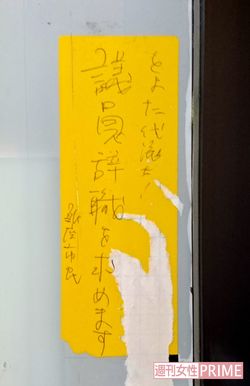 とよた代議士!
議員辞職を求めます
新座市民
週刊女性PRIME